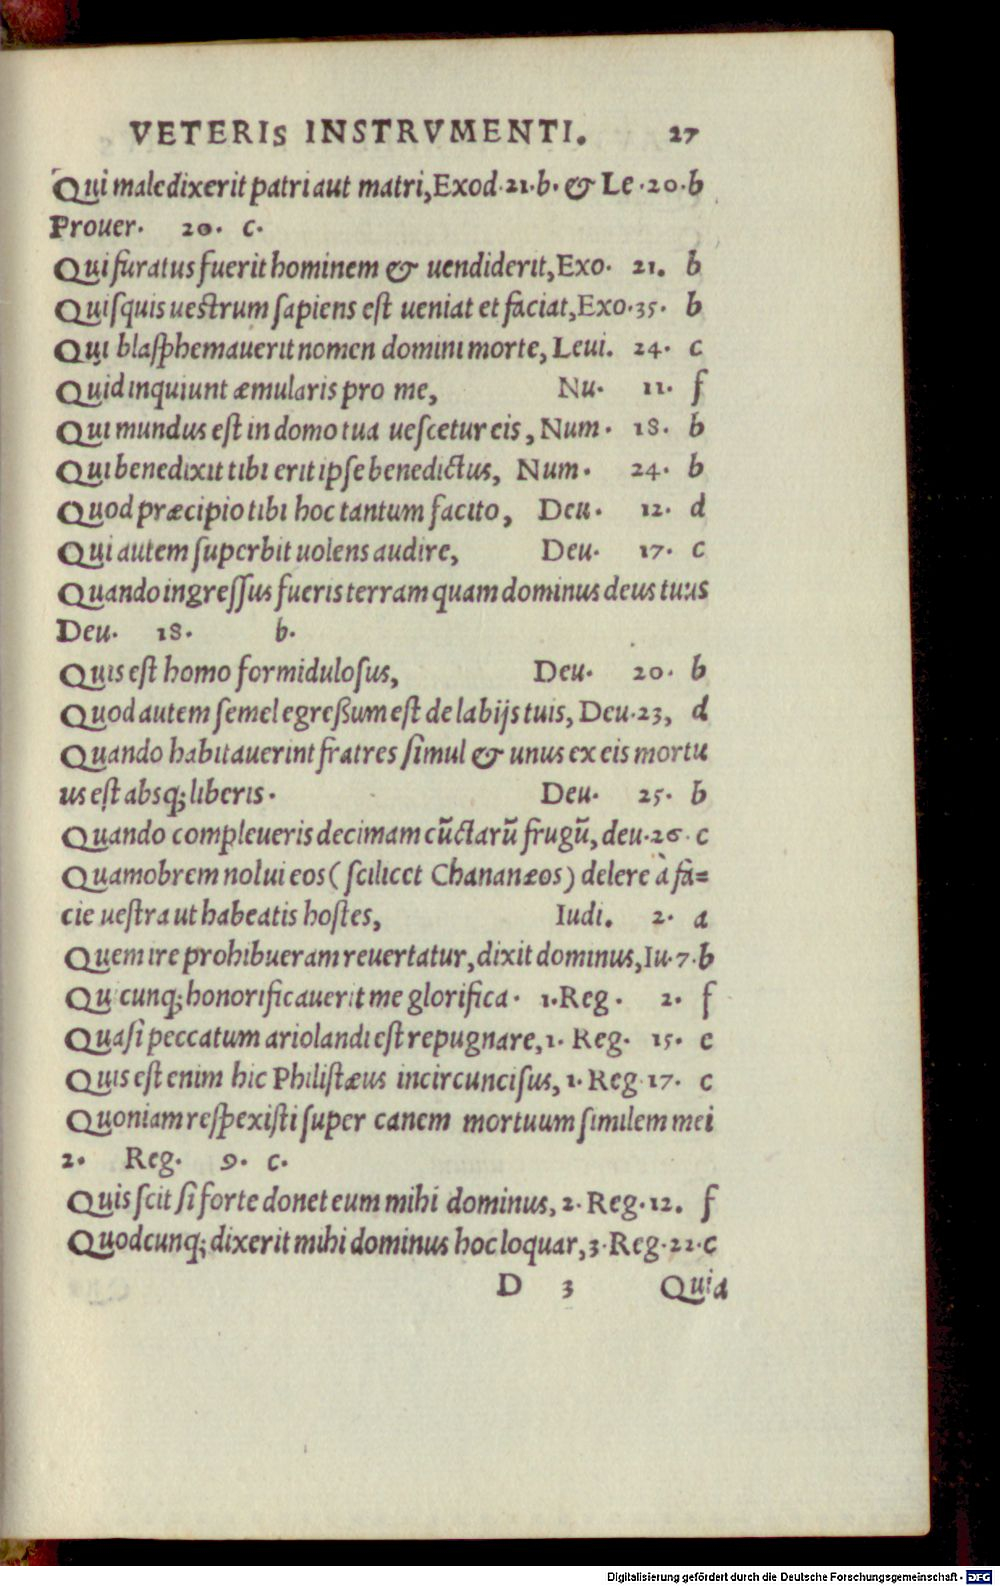 VETERIS INSTRVMENTI. 27
Qui maledixerit patri aut matri, Exod. 21. b. & Le. 20. b
Prouer. 20. c.
Qui furatus fuerit hominem & uendiderit, Exo. 21. b
Quiſquis uestrum ſapiens eſt ueniat et faciat, Exo. 35. b
Qui blaſphemauerit nomen domini morte, Leui. 24. c
Quid inquiunt æmularis pro me, Nu. 11. f
Qui mundus eſt in domo tua ueſcetur eis, Num. 18. b
Qui benedixit tibi erit ipſe benedictus, Num. 24. b
Quod præcipio tibi hoc tantum facito, Deu. 12. d
Qui autem ſuperbit uolens audire, Deu. 17. c
Quando ingreſſus fueris terram quam dominus deus tuus
Deu. 18. b.
Quis eſt homo formiduloſus, Deu. 20. b
Quod autem ſemel egreßum eſt de labijs tuis, Deu. 23, d
Quando habitauerint fratres ſimul & unus ex eis mortu
us eſt absq; liberis. Deu. 25. b
Quando compleueris decimam cũctarũ frugũ, deu. 26. c
Quamobrem nolui eos (ſcilicet Chananæos) delere à fa=
cie ueſtra ut habeatis hoſtes, Iudi. 2. a
Quem ire prohibueram reuertatur, dixit dominus, Iu. 7. b
Qui cunq; honorificauerit me glorifica. 1. Reg. 2. f
Quaſi peccatum ariolandi eſt repugnare, 1. Reg. 15. e
Quis eſt enim hic Philiſtæus incircunciſus, 1. Reg 17. c
Quoniam reſpexiſti ſuper canem mortuum ſimilem mei
2. Reg. 9. c.
Quis ſcit ſi forte donet eum mihi dominus, 2. Reg. 12. f
Quodcunq; dixerit mihi dominus hoc loquar, 3. Reg. 22. c
D 3 Quia
Digitalisierung gefördert durch die Deutsche Forschungsgemeinschaft - DFG